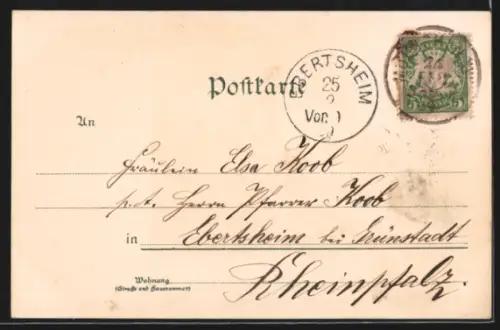 Postkarte
EBERTSHEIM
25
2
Vor.
5 5
An
Fräulein Elsa Koob
p. A. Herrn Pfarrer Koob
in Ebertsheim bei Grünstadt
Rheinpfalz
Wohnung
(Straße und Hausnummer)